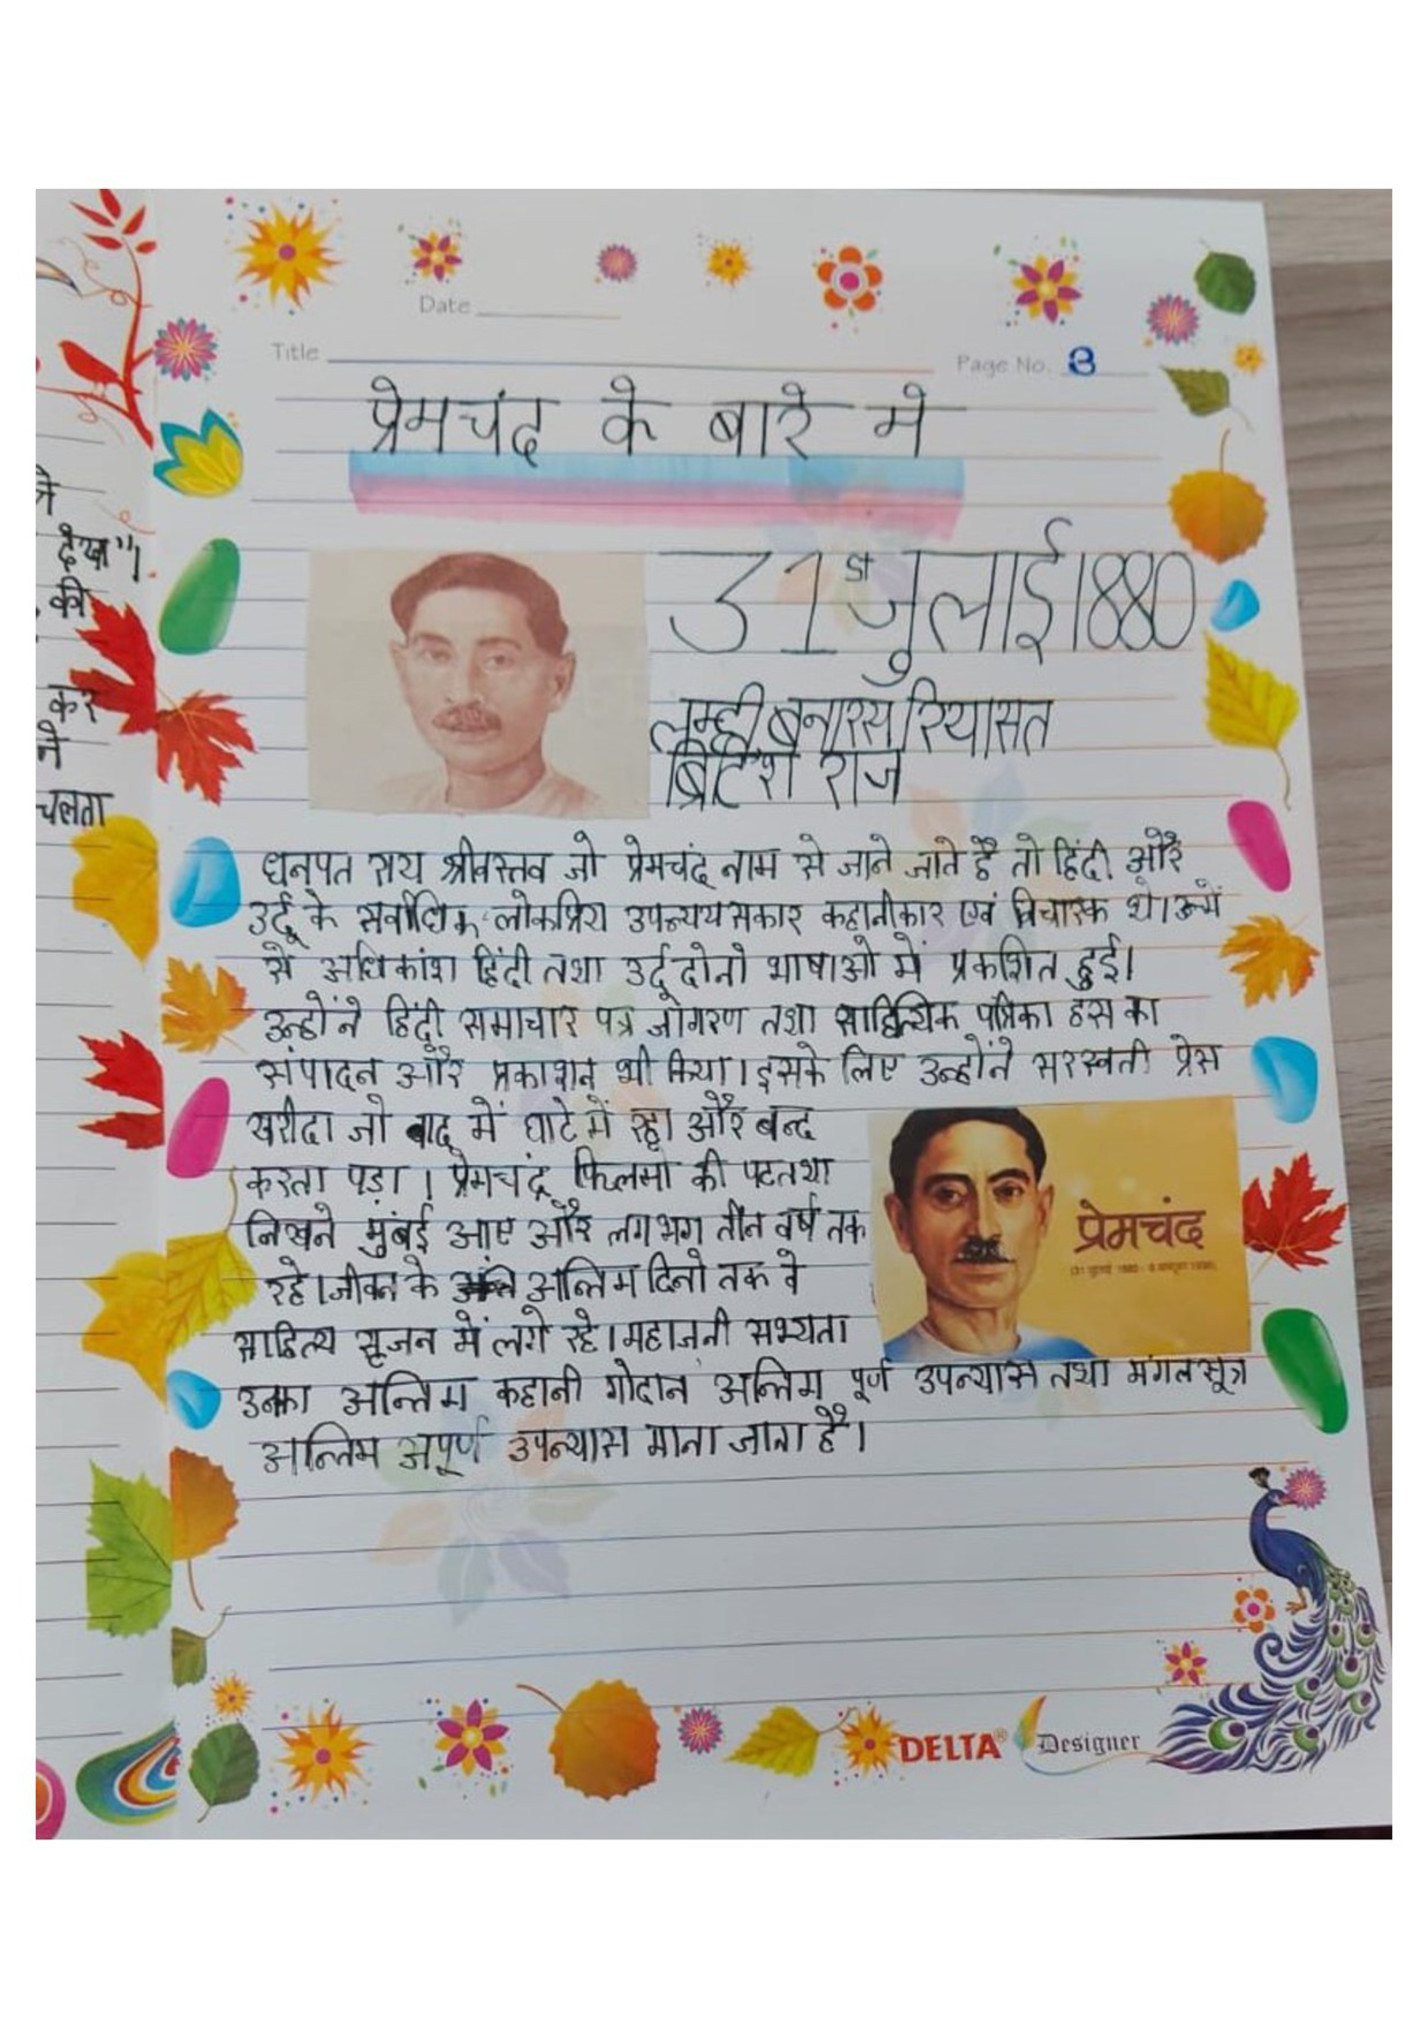 ने
देखा"।
की
कर
ने
चलता
Date
Title
Page No. 3
प्रेमचंद के बारे मे
31st जुलाई 1880
लम्ही बनारस रियासत
ब्रिटिश राज
धनपत राय श्रीवस्तव जो प्रेमचंद नाम से जाने जाते है तो हिंदी और
उर्दू के सर्वाधिक लोकप्रिय उपन्ययसकार कहानीकार एवं विचारक थे। उनमें
से अधिकांश हिंदी तथा उर्दू दोनो भाषाओ में प्रकशित हुई।
उन्होंने हिंदी समाचार पत्र जागरण तथा साहित्यिक पत्रिका हंस का
संपादन और प्रकाशन भी किया। इसके लिए उन्होंने सरस्वती प्रेस
खरीदा जो बाद में घाटे में रहा और बन्द
करता पड़ा। प्रेमचंद फिल्मो की पटतथा
लिखने मुंबई आए और लगभग तीन वर्ष तक
रहे। जीवन के अन्तिम दिनो तक वे
साहित्य सृजन में लगे रहे। महाजनी सभ्यता
प्रेमचंद
(31 जुलाई 1880 - 8 अक्टूबर 1936)
उनका अन्तिम कहानी गोदान अन्तिम पूर्ण उपन्यास तथा मंगलसूत्र
अन्तिम अपूर्ण उपन्यास माना जाता है।
DELTA® Designer